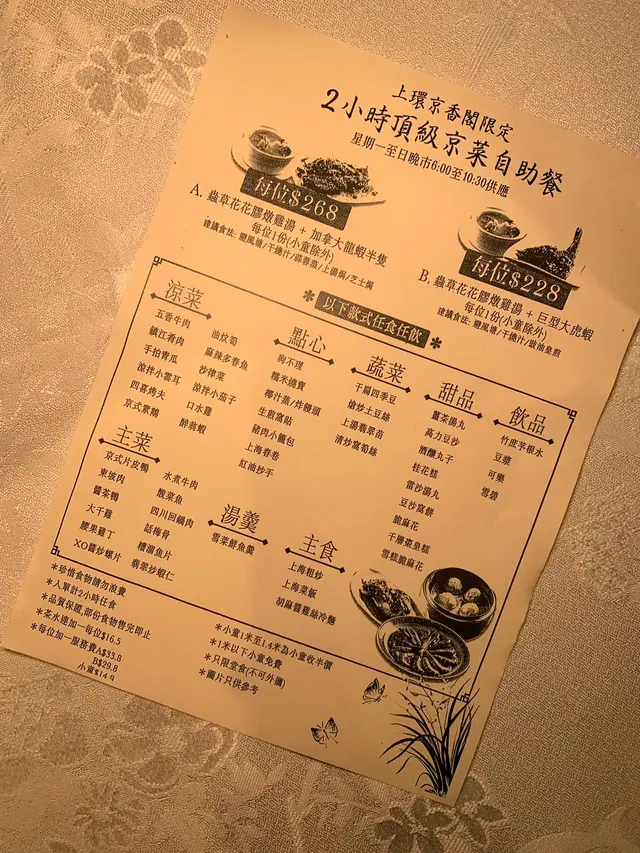 上環京香閣限定
2小時頂級京菜自助餐
星期一至日晚市6:00至10:30供應
每位$268
A. 蟲草花花膠燉雞湯 + 加拿大龍蝦半隻
每位1份(小童除外)
建議食法: 避風塘/干燒汁/蒜蓉蒸/上湯焗/芝士焗
每位$228
B. 蟲草花花膠燉雞湯 + 巨型大虎蝦
每位1份(小童除外)
建議食法: 避風塘/干燒汁/豉油皇煎
以下款式任食任飲
涼菜
五香牛肉
鎮江肴肉
手拍青瓜
涼拌小雲耳
四喜烤夫
京式素鵝
油炆筍
麻辣多春魚
沙律菜
涼拌小茄子
口水雞
醉翁蝦
點心
狗不理
糯米燒賣
椰汁蒸/炸饅頭
生煎窩貼
豬肉小籠包
上海春卷
紅油炒手
蔬菜
干扁四季豆
熗炒土豆絲
上湯翡翠苗
清炒窩筍絲
甜品
薑茶湯丸
高力豆沙
酒釀丸子
桂花糕
雷沙湯丸
豆沙窩餅
脆麻花
千層棗皇糕
雪糕脆麻花
飲品
竹庶茅根水
豆漿
可樂
雪碧
主菜
京式片皮鴨
東坡肉
醬茶鴨
大干雞
腰果雞丁
XO醬炒螺片
水煮牛肉
酸菜魚
四川回鍋肉
話梅骨
糟溜魚片
翡翠炒蝦仁
湯羹
雪菜鮮魚羹
主食
上海粗炒
上海菜飯
胡麻醬雞絲冷麵
*珍惜食物請勿浪費
*人單計2小時任食
*品質保證,部份食物售完即止
*茶水連加一每位$16.5
*每位加一服務費A$33.8
B$29.8
小童$14.9
*小童1米至1.4米為小童收半價
*1米以下小童免費
*只限堂食(不可外攜)
*圖片只供參考